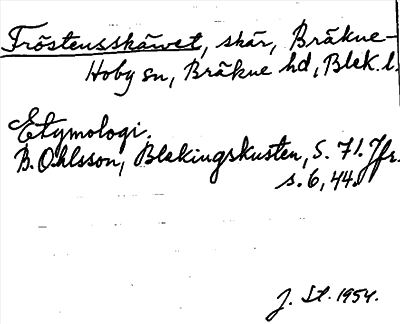 Fröstensskäret, skär, Bräkne-
Hoby sn, Bräkne hd, Blek. l.
Etymologi.
B. Ohlsson, Blekingskusten, S. 71. Jfr.
s. 6, 44.
J. St. 1954.